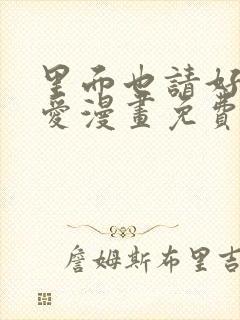 里而也請好
愛漫畫免費
詹姆斯布里吉